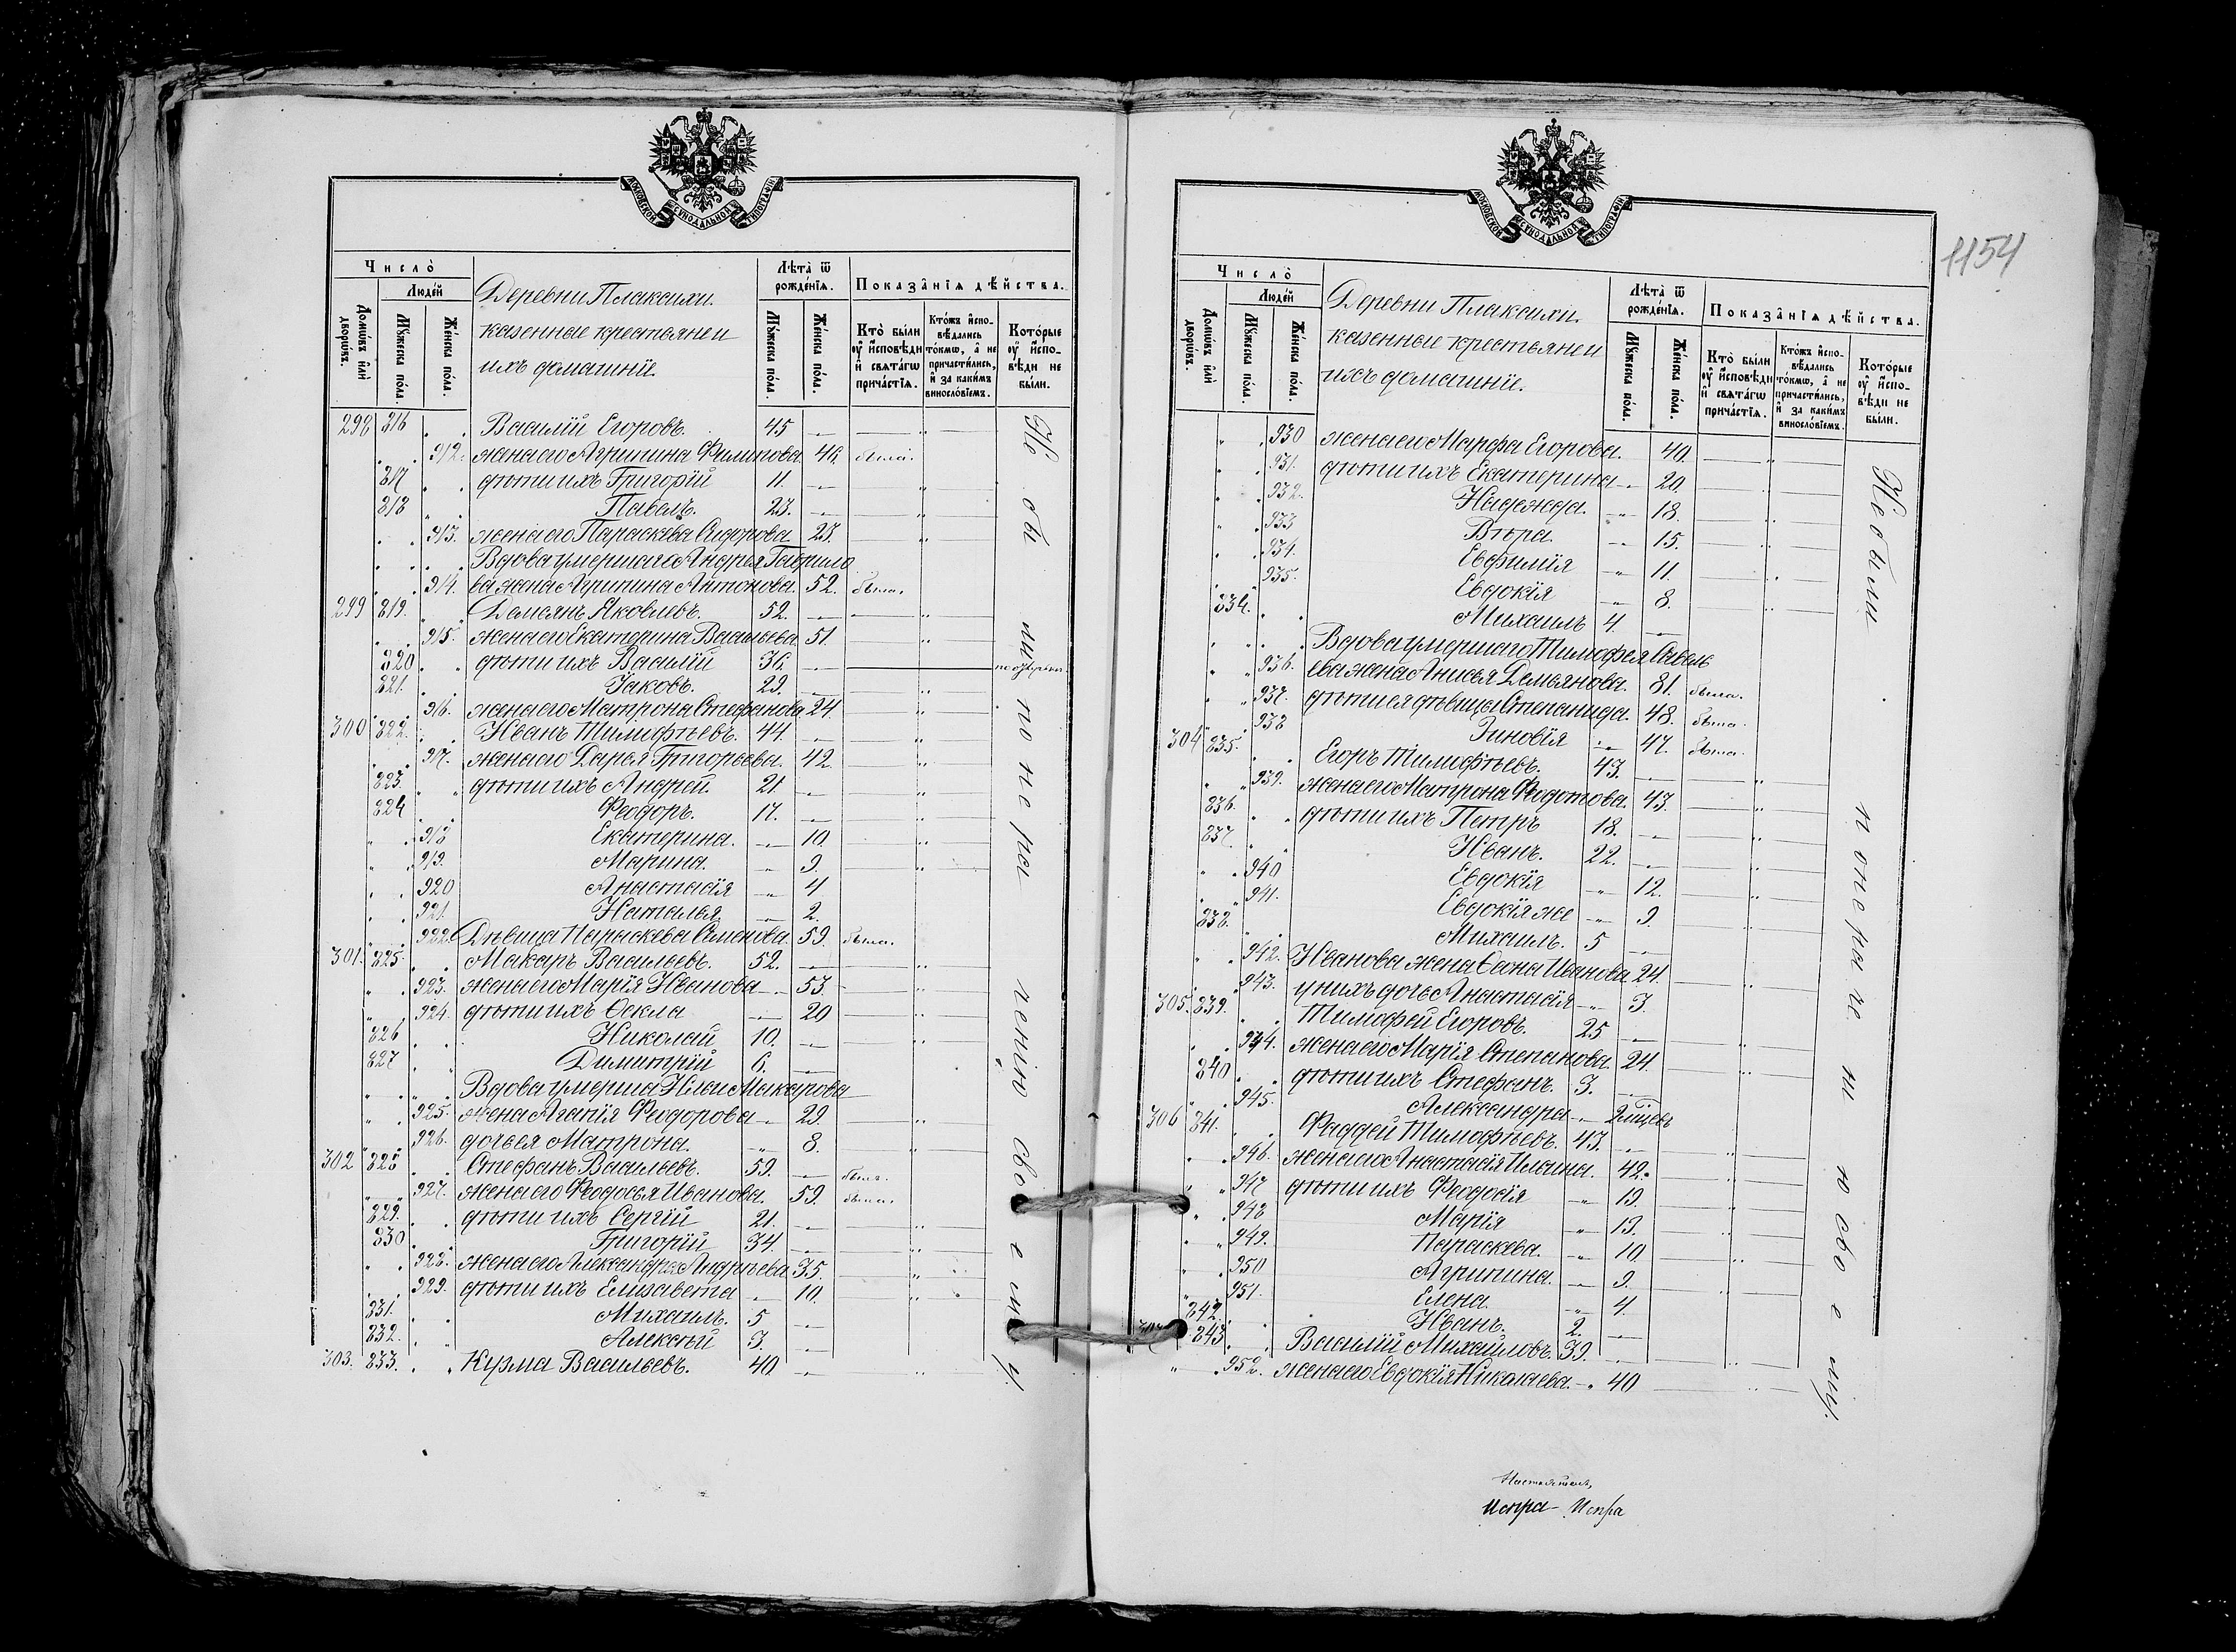 МОСКОВСКОЙ СѴНОДАЛЬНОЙ ТИПОГРАФІИ
Число̀
Люде́й
Домѡ́въ и҆лѝ дворѡ́въ.
Мꙋ́жеска по́ла.
Же́нска по́ла.
Деревни Плаксихи.
казенные крестьяне и
ихъ домашніе.
Лѣта̀ ѿ рожде́нїѧ.
Мꙋ́жеска по́ла.
Же́нска по́ла.
Показа̂нїѧ дѣ́йства.
Кто̀ бы́ли оу҆ и҆сповѣ́ди и҆ свѧта́гѡ прича́стїѧ.
Кто́жъ и҆спо-вѣ́дались то́кмѡ, а҆ не причасти́лись, и҆ за каки́мъ винослові́емъ.
Кото́рые оу҆ и҆спо-вѣ́ди не бы́ли.
298 816 Василій Егоровъ. 45
912. жена его Агрипина Филипова. 46. была.
817 дѣти ихъ Григорій 11.
818 Павелъ. 23.
913. жена его Параскева Сидорова. 23.
Вдова умершаго Андрея Гаврило
914. ва жена Агрипина Антонова. 52. была.
299 819. Демьянъ Яковлевъ. 52.
915. жена его Екатерина Васильева. 51.
820 дѣти ихъ Василій 36.
821. Іаковъ. 29.
916. жена его Матрона Стефанова 24.
300 822. Иванъ Тимофѣевъ. 44.
917. жена его Дарья Григорьева. 42.
823. дѣти ихъ Андрей. 21
824 Феодоръ. 17.
918 Екатерина. 10.
919. Марина. 9.
920 Анастасія 4
921. Наталья. 2.
922. Дѣвица Параскева Семенова. 59. была.
301. 825. Макаръ Васильевъ. 52.
923. жена его Марія Иванова 53
924. дѣти ихъ Ѳекла 20
826 Николай 10.
827 Димитрій 6.
Вдова умерша Ильи Макарова
925. жена Агапія Феодорова 29.
926. дочь ея Матрона. 8.
302 828 Стефанъ Васильевъ. 59. былъ.
927. жена его Феодосья Иванова. 59. была.
829. дѣти ихъ Сергій 21.
830 Григорій 34.
928. жена его Александра Андреева 35.
929. дѣти ихъ Елисавета 10.
831. Михаилъ. 5
832. Алексѣй 3.
303. 833. Кузма Васильевъ. 40.
Не были по нерачению своему.
1154
МОСКОВСКОЙ СѴНОДАЛЬНОЙ ТИПОГРАФІИ
Число̀
Люде́й
Домѡ́въ и҆лѝ дворѡ́въ.
Мꙋ́жеска по́ла.
Же́нска по́ла.
Деревни Плаксихи.
казенные крестьяне и
ихъ домашніе.
Лѣта̀ ѿ рожде́нїѧ.
Мꙋ́жеска по́ла.
Же́нска по́ла.
Показа̂нїѧ дѣ́йства.
Кто̀ бы́ли оу҆ и҆сповѣ́ди и҆ свѧта́гѡ прича́стїѧ.
Кто́жъ и҆спо-вѣ́дались то́кмѡ, а҆ не причасти́лись, и҆ за каки́мъ винослові́емъ.
Кото́рые оу҆ и҆спо-вѣ́ди не бы́ли.
930 жена его Марфа Егорова. 40.
931. дѣти ихъ Екатерина 20.
932. Надежда. 18.
933 Вѣра. 15.
934. Евфимія 11.
935. Евдокія 8.
834. Михаилъ 4.
Вдова умершего Тимофея Савель
936. ева жена Анисья Демьянова. 81. была.
937. дѣти ея дѣвицы Степанида. 48. была.
938 Зиновія 47. была.
304 835. Егоръ Тимофѣевъ. 43.
939. жена его Матрона Федотова. 43.
836. дѣти ихъ Петръ 18.
837. Иванъ. 22.
940 Евдокія 12.
941. Евдокія же 9
838. Михаилъ. 5
942. Иванова жена Іванова 24.
943. у нихъ дочь Анастасія 3.
305. 839. Тимофей Егоровъ. 25
944. жена его Марія Степанова. 24.
840 дѣти ихъ Стефанъ. 3.
945. Александра
306 841. Фаддей Тимофѣевъ. 43.
946. жена его Анастасія Ильина. 42.
947 дѣти ихъ Феодосія 19.
948 Марія 13.
949. Параскева. 10.
950 Агрипина. 9.
951. Елена. 4
842. Иванъ. 2.
843 Василій Михайловъ. 39.
952. жена его Евдокія Николаева. 40
Не были по нерачению своему.